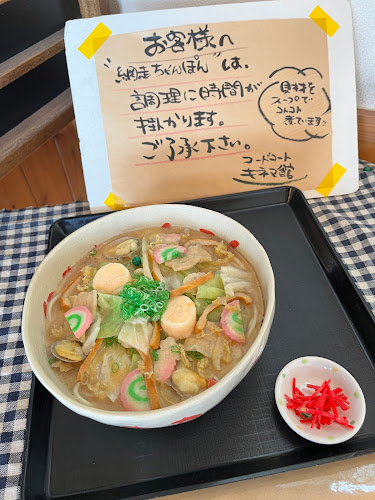 お客様へ
"網走ちゃんぽん"は、
調理に時間が
掛かります。
ご了承下さい。
具材を
スープで
コトコト
煮ています♪
フードコート
キネマ館